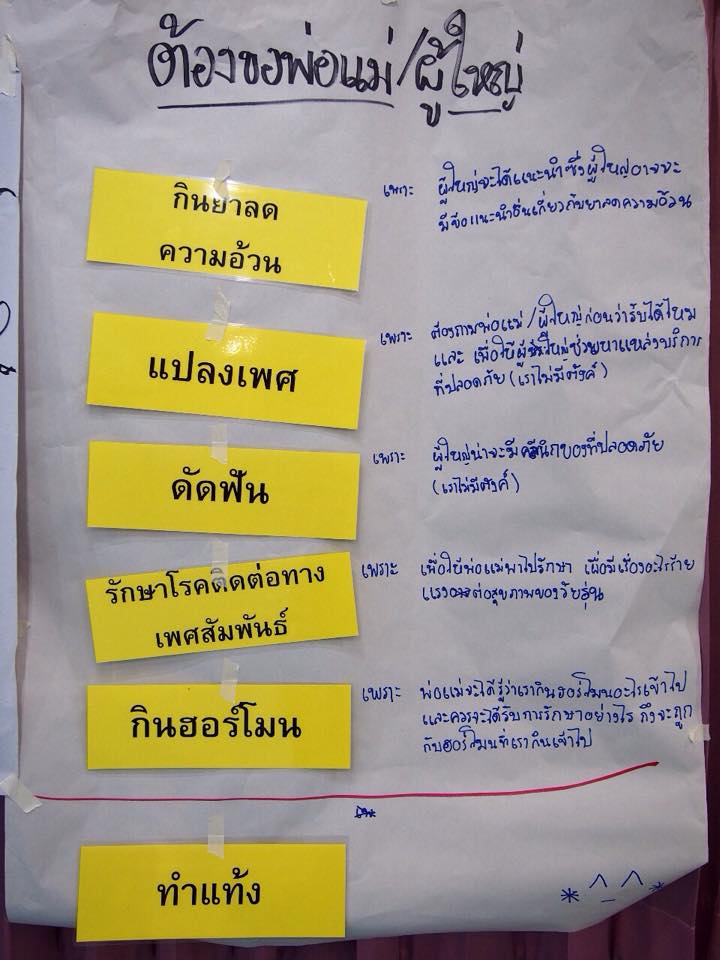 ต้องขอพ่อแม่/ผู้ใหญ่
กินยาลด
ความอ้วน
เพราะ ผู้ใหญ่จะได้แนะนำซึ่งผู้ใหญ่อาจจะ
มีข้อแนะนำอื่นเกี่ยวกับยาลดความอ้วน
แปลงเพศ
เพราะ ต้องถามพ่อแม่/ผู้ใหญ่ก่อนว่ารับได้ไหม
และ เพื่อให้ผู้ใหญ่ช่วยหาแหล่งบริการ
ที่ปลอดภัย (เราไม่มีตังค์)
ดัดฟัน
เพราะ ผู้ใหญ่น่าจะมีคลีนิกของที่ปลอดภัย
(เราไม่มีตังค์)
รักษาโรคติดต่อทาง
เพศสัมพันธ์
เพราะ เพื่อให้พ่อแม่พาไปรักษา เผื่อมีเรื่องอะไรร้าย
แรงต่อสุขภาพของวัยรุ่น
กินฮอร์โมน
เพราะ พ่อแม่จะได้รู้ว่าเรากินฮอร์โมนอะไรเข้าไป
และควรจะได้รับการรักษาอย่างไร ถึงจะถูก
กับฮอร์โมนที่เรากินเข้าไป
ทำแท้ง
*^_^*